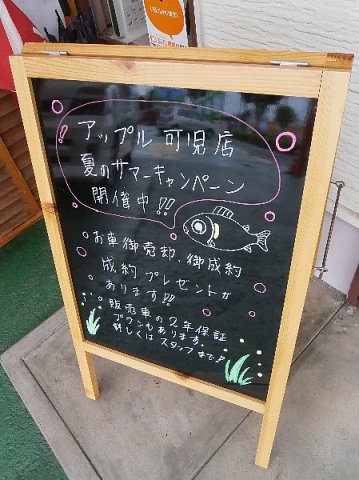 アップル 可児店
夏のサマーキャンペーン
開催中!!
お車御売却、御成約
成約プレゼントが
あります!!
販売車の2年保証
プランもあります。
詳しくはスタッフまで!!